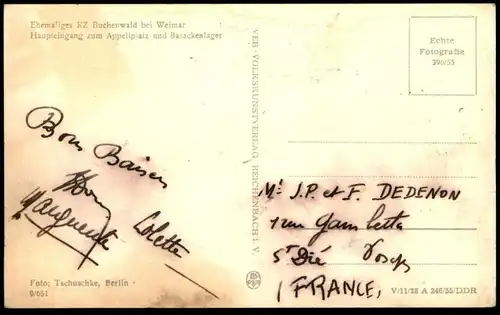 Ehemaliges KZ Buchenwald bei Weimar
Haupteingang zum Appellplatz und Barackenlager
Echte
Fotografie
390/55
VEB-VOLKSKUNSTVERLAG REICHENBACH i. V.
Bons Baisers
Colette
Marguerite
Mr J.P. et F. DEDENON
1 rue Gambetta
St Dié Vosges
(FRANCE)
Foto: Tschuschke, Berlin
9/651
V/11/28 A 246/55/DDR